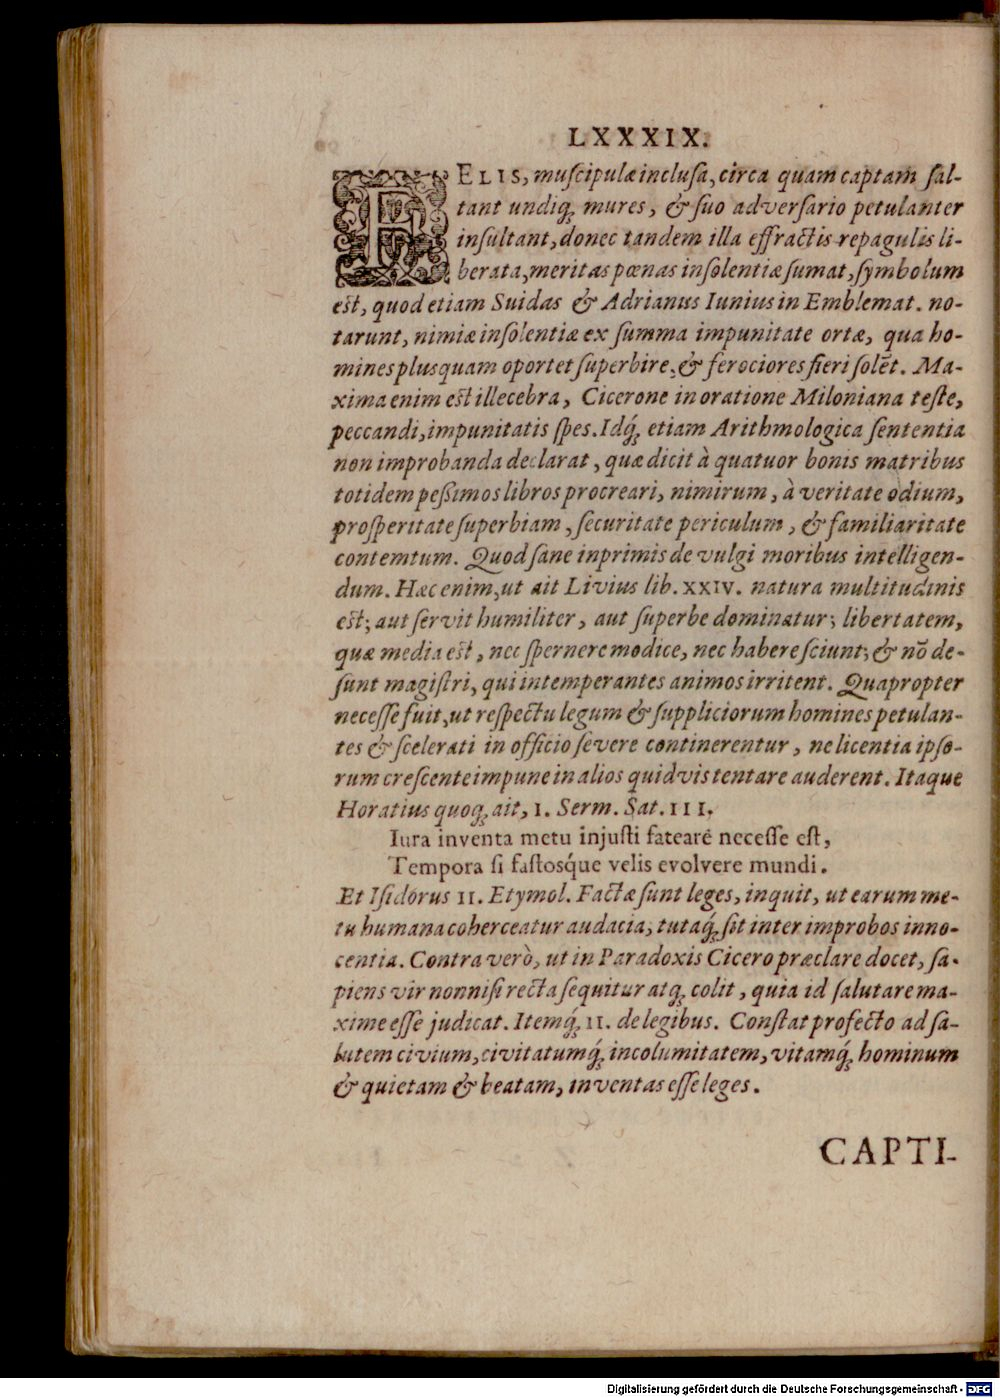 LXXXIX.
FELIS, muſcipulæ incluſa, circa quam captam ſal-
tant undiq; mures, & ſuo adverſario petulanter
inſultant, donec tandem illa effractis repagulis li-
berata, meritas pœnas inſolentiæ ſumat, ſymbolum
eſt, quod etiam Suidas & Adrianus Iunius in Emblemat. no-
tarunt, nimiæ inſolentiæ ex ſumma impunitate ortæ, qua ho-
mines plus quam oportet ſuperbire, & ferociores fieri ſolẽt. Ma-
xima enim eſt illecebra, Cicerone in oratione Miloniana teſte,
peccandi, impunitatis ſpes. Idq́; etiam Arithmologica ſententia
non improbanda declarat, quæ dicit à quatuor bonis matribus
totidem peßimos libros procreari, nimirum, à veritate odium,
proſperitate ſuperbiam, ſecuritate periculum, & familiaritate
contemtum. Quod ſane inprimis de vulgi moribus intelligen-
dum. Hæc enim, ut ait Livius lib. XXIV. natura multitudinis
eſt; aut ſervit humiliter, aut ſuperbe dominatur; libertatem,
quæ media eſt, nec ſpernere modice, nec habere ſciunt; & nõ de-
ſunt magiſtri, qui intemperantes animos irritent. Quapropter
neceſſe fuit, ut reſpectu legum & ſuppliciorum homines petulan-
tes & ſcelerati in officio ſevere continerentur, ne licentia ipſo-
rum creſcente impune in alios quidvis tentare auderent. Itaque
Horatius quoq; ait, I. Serm. Sat. III.
Iura inventa metu injuſti fatearé neceſſe eſt,
Tempora ſi faſtosq́ue velis evolvere mundi.
Et Iſidorus II. Etymol. Factæ ſunt leges, inquit, ut earum me-
tu humana coherceatur audacia, tutaq́; ſit inter improbos inno-
centia. Contra verò, ut in Paradoxis Cicero præclare docet, ſa-
piens vir nonniſi recta ſequitur atq; colit, quia id ſalutare ma-
xime eſſe judicat. Itemq́; II. de legibus. Conſtat profecto ad ſa-
lutem civium, civitatumq́; incolumitatem, vitamq́; hominum
& quietam & beatam, inventas eſſe leges.
CAPTI-
Digitalisierung gefördert durch die Deutsche Forschungsgemeinschaft - DFG